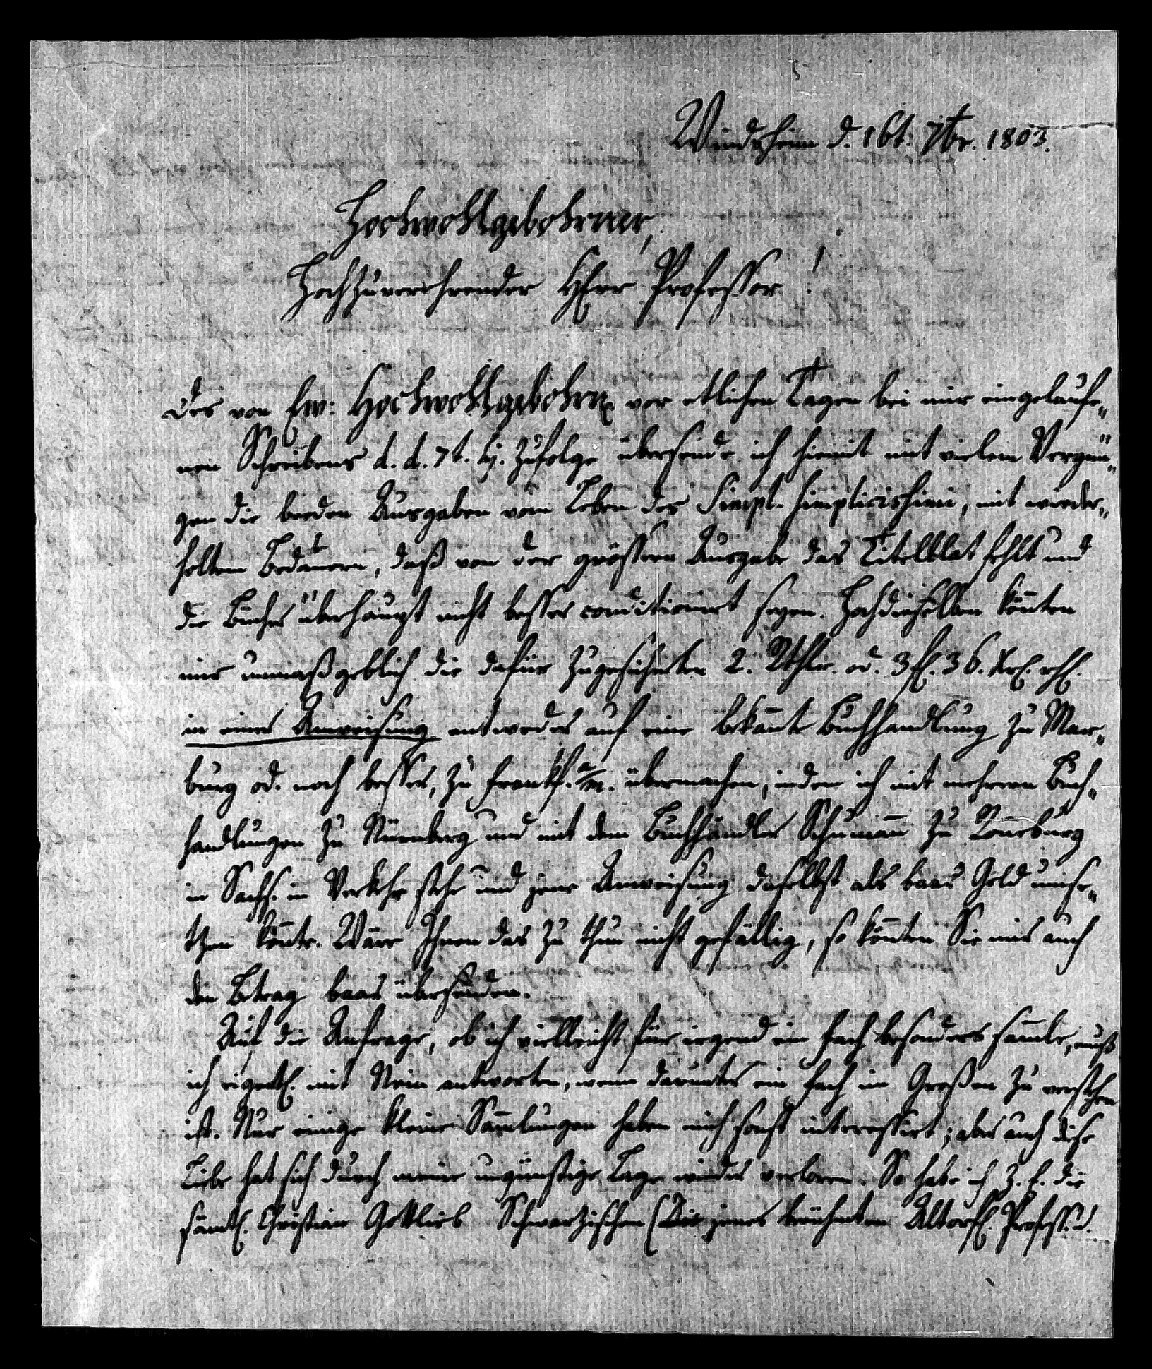 Windsheim d. 16t. 7br. 1803.
Hochwohlgebohrner,
Hochzuverehrender HErr Professor!
Des von Ew: Hochwohlgebohrn vor etlichen Tagen bei mir eingelaufe-
nen Schreibens d. d. 7t. hj. zufolge übersende ich hiemit mit vielem Vergnü-
gen die beeden Ausgaben vom Leben des Simpl. Simplicissimi, mit wieder-
holtem Bedauern, daß von der grössern Ausgabe das Titelblat fehlt und
die Bücher überhaupt nicht besser conditionirt seyen. Hochdieselben könten
mir unmaßgeblich die dafür zugesicherten 2. Rthlr. od. 3 fl. 36. Xr. rhl.
in einer Anweisung entweder auf eine bekante Buchhandlung zu Mar-
burg od. noch besser, zu Frankf. a/m. übermachen, indem ich mit mehrern Buch-
handlungen zu Nürnberg und mit dem Buchhändler Schumann zu Ronneburg
in Sachs. in Verkehr stehe und jene Anweisung daselbst als baar Geld umse-
tzen könte. Wäre Ihnen das zu thun nicht gefällig, so könten Sie mir auch
den Betrag baar übersenden.
Auf die Anfrage, ob ich vielleicht für irgend ein Fach besonders samle, muß
ich eigentl. mit Nein antworten, wenn darunter ein Fach im Großen zu verstehen
ist. Nur einige kleine Samlungen haben mich sonst interessirt; aber auch diese
Liebe hat sich durch meine ungünstige Lage wieder verloren. So habe ich z. E. die
sämtl. Christian Gottlieb Schwarzischen (Die jenes berühmten Altorfl. Profess. d.